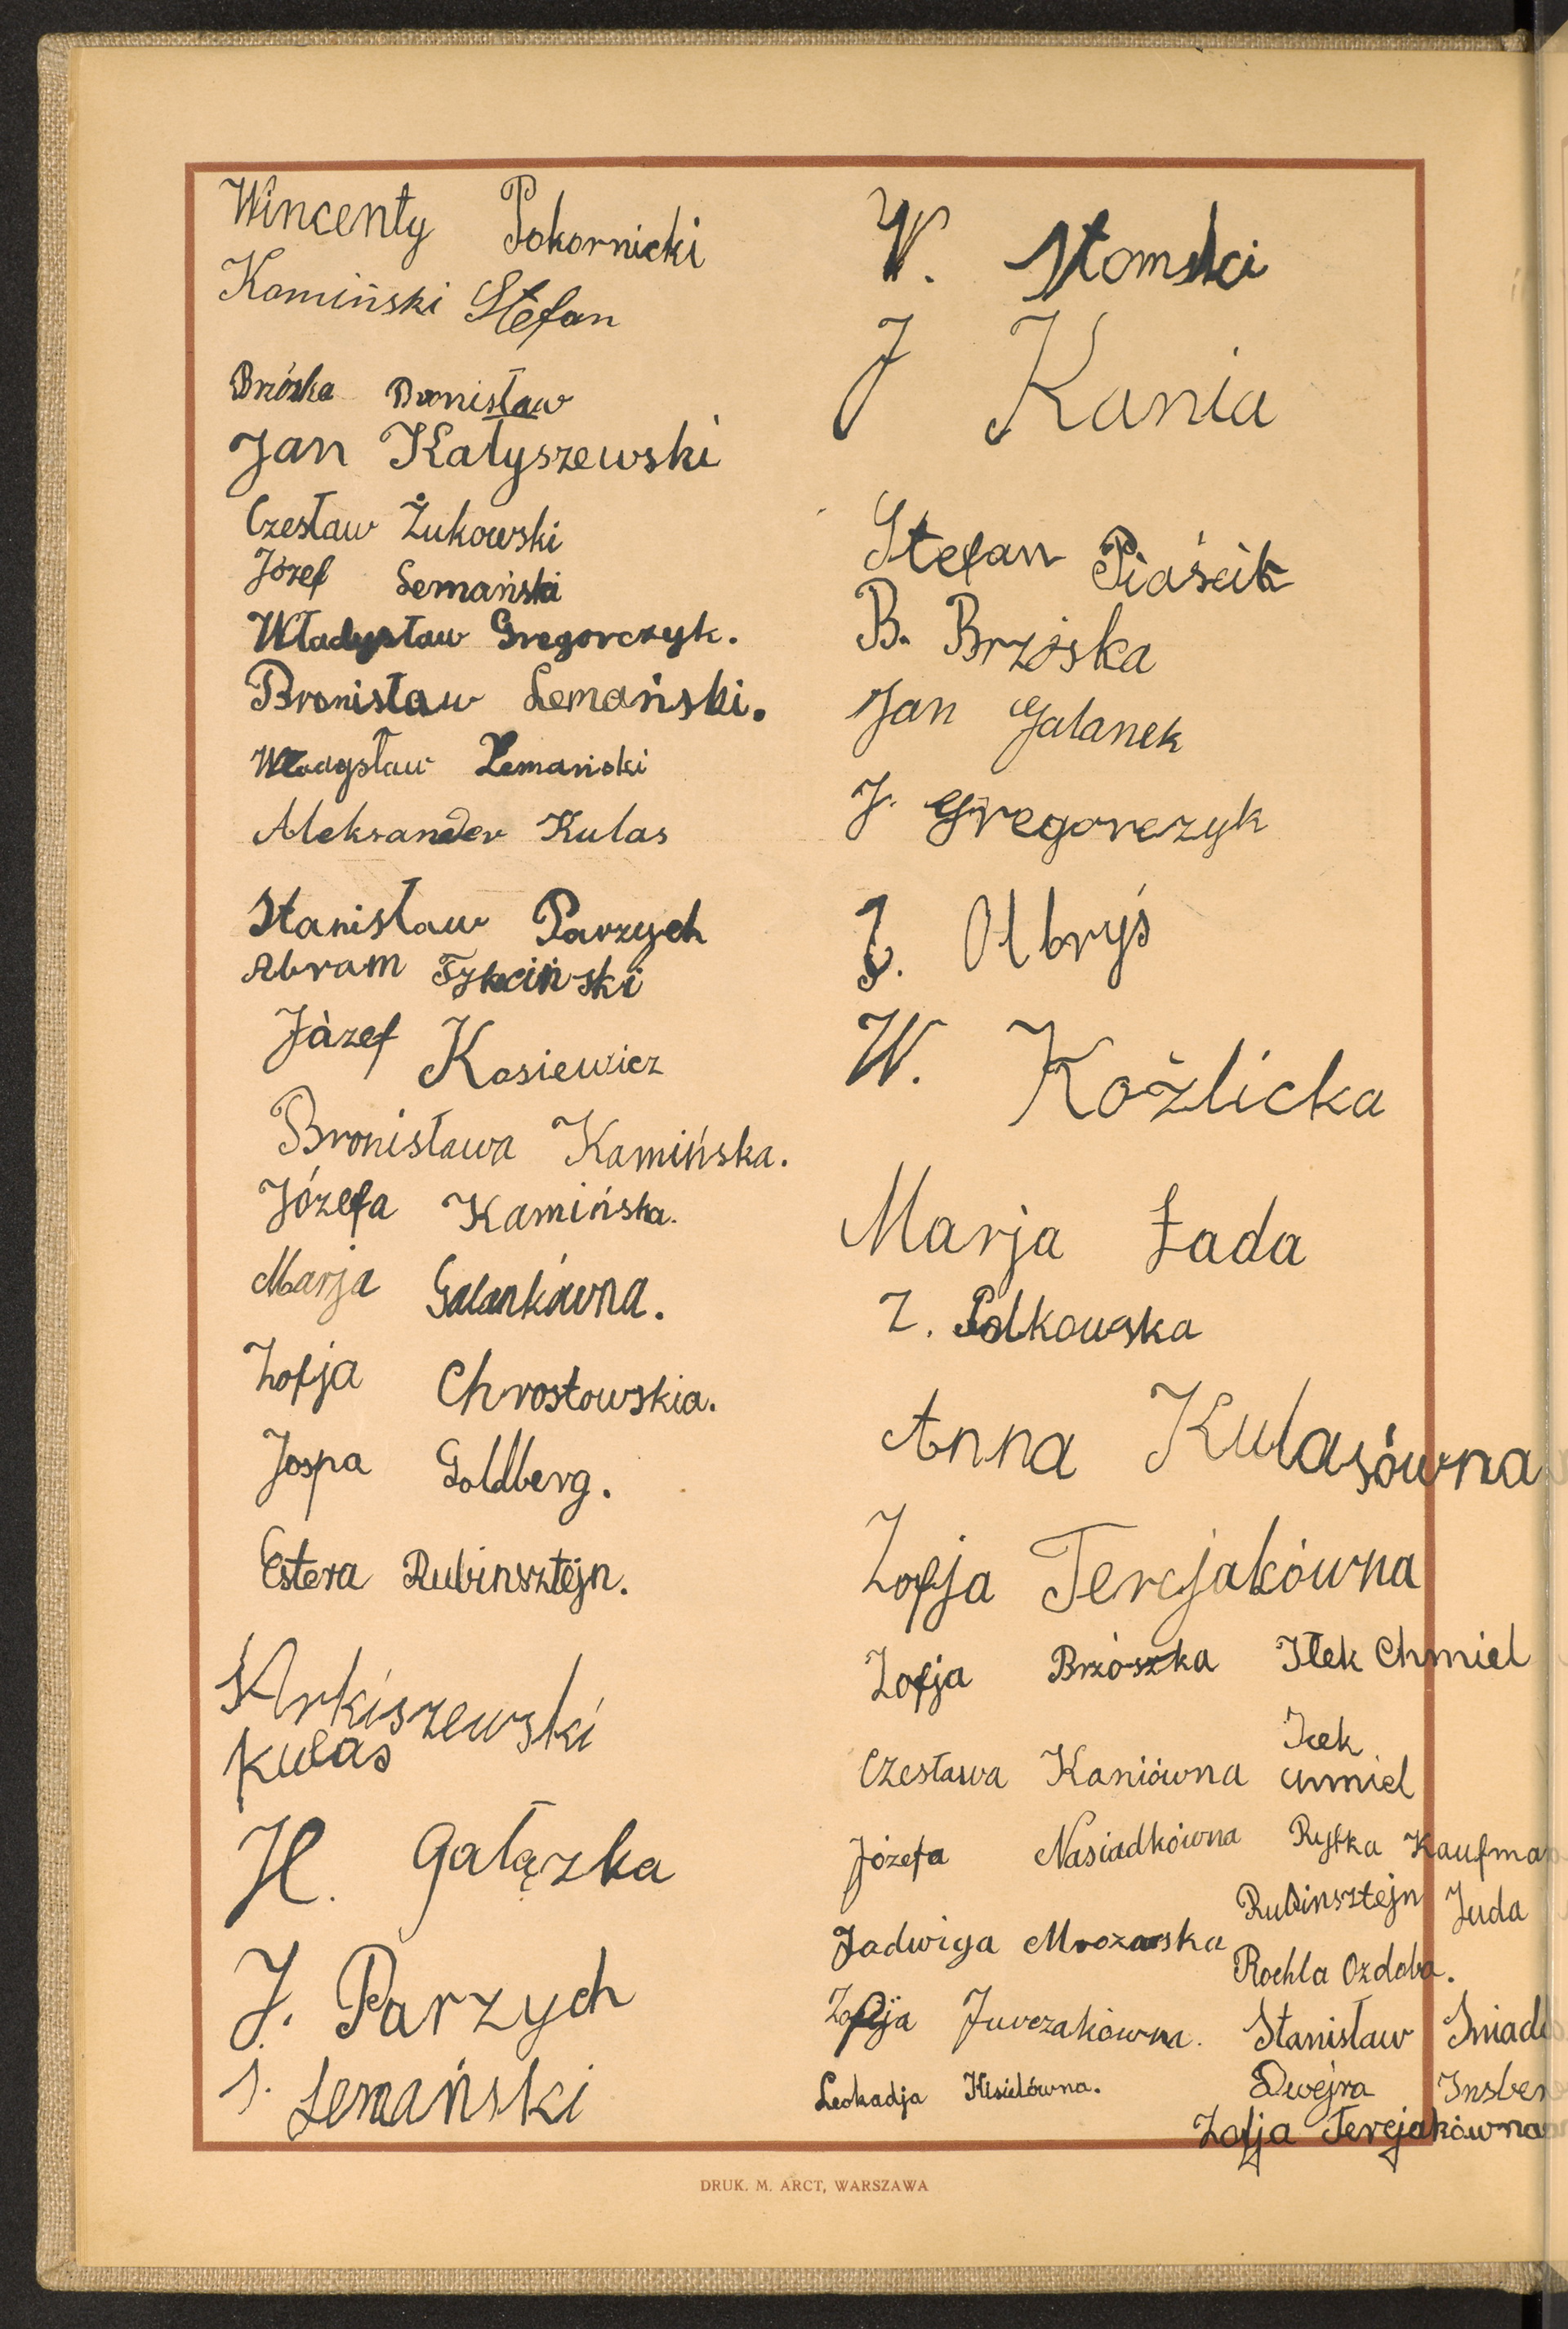 Wincenty Pokornicki
Kamiński Stefan
Brzóska Bronisław
Jan Kałyszewski
Czesław Żukowski
Józef Lemański
Władysław Gregorczyk.
Bronisław Lemański.
Władysław Lemański
Aleksander Kulas
Stanisław Parzych
Abram
Józef Kosiewicz
Bronisława Kamińska.
Józefa Kamińska.
Marja Galankówna.
Zofja Chrostowskia.
Jospa Goldberg.
Estera Rubinsztejn.
Arkiszewski
Kulas
H. Gałązka
J. Parzych
S. Lemański
W. Słomski
J Kania
Stefan Piaścik
B. Brzóska
Jan Galanek
J. Gregorczyk
J. Olbryś
W. Koźlicka
Marja Łada
Z. Polkowska
Anna Kulasówna
Zofja Tercjakówna
Zofja Brzószka Itek Chmiel
Czesława Kaniówna Icek Chmiel
Józefa Nasiadkówna Ryfka Kaufman
Rubinsztejn Juda
Jadwiga Mrozowska
Rochla Ozdoba.
Zofija Jurczakówna. Stanisław
Leokadja Kisielówna. Dwejra
Zofja Tercjakówna
DRUK. M. ARCT, WARSZAWA